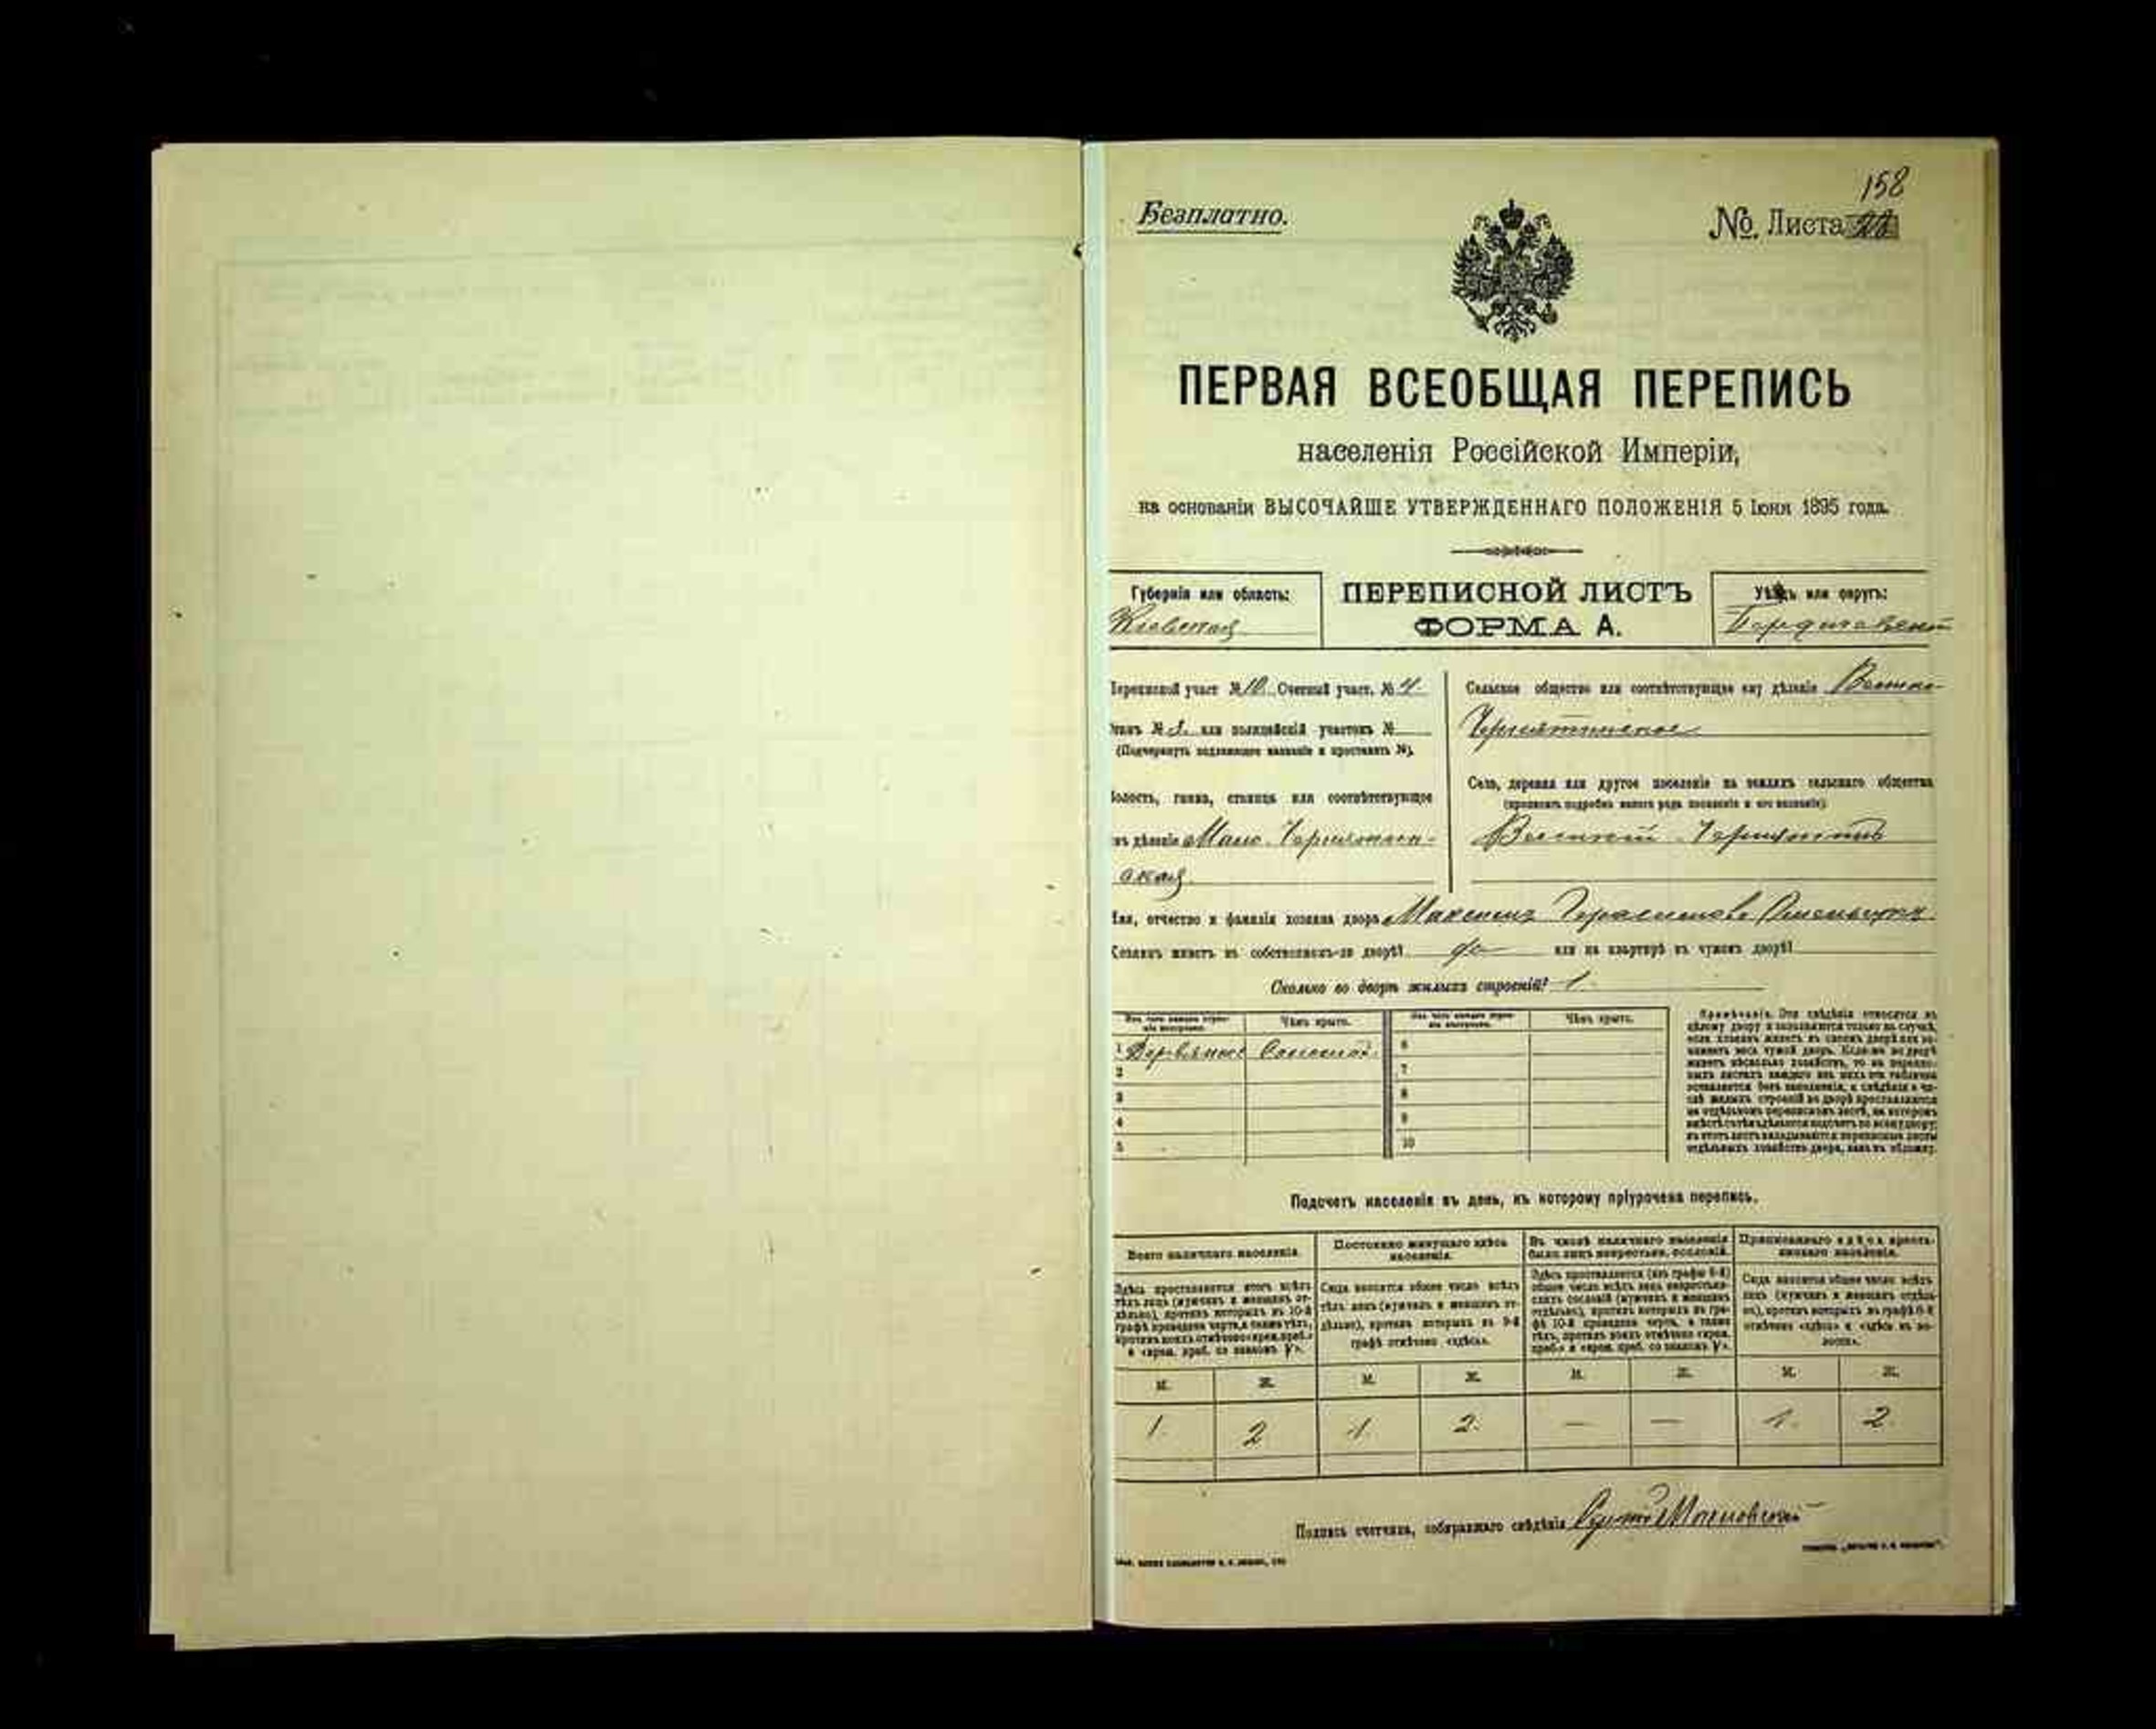 158
Безплатно.
№ Листа
ПЕРВАЯ ВСЕОБЩАЯ ПЕРЕПИСЬ
населенія Россійской Имперіи,
на основаніи ВЫСОЧАЙШЕ УТВЕРЖДЕННАГО ПОЛОЖЕНІЯ 5 Іюня 1895 года.
Губернія или область:
Кіевская
ПЕРЕПИСНОЙ ЛИСТЪ
ФОРМА А.
Уѣздъ или округъ:
Бердичевскій
Переписной участ. № 10. Счетный участ. № 4.
Станъ № 3. или полицейскій участокъ №
(Подчеркнуть подлежащее названіе и проставить №).
Волость, гмина, станица или соотвѣтствующее
имъ дѣленіе Мало-Чернятин-
ская
Сельское общество или соотвѣтствующее ему дѣленіе Велико-
Чернятинское
Село, деревня или другое поселеніе на земляхъ сельскаго общества
(прописать подробно какого рода поселеніе и его названіе):
Великій Чернятинъ
Имя, отчество и фамилія хозяина двора Максимъ Герасимовъ
Хозяинъ живетъ въ собственномъ-ли дворѣ? да или на квартирѣ въ чужомъ дворѣ?
Сколько во дворѣ жилыхъ строеній? 1
Изъ чего каждое строе-
ніе выстроено.
Чѣмъ крыто.
Изъ чего каждое строе-
ніе выстроено.
Чѣмъ крыто.
1 Деревяное Соломой
2
3
4
5
6
7
8
9
10
Примѣчаніе. Эти свѣдѣнія относятся къ
цѣлому двору и заполняются только въ случаѣ,
если хозяинъ живетъ въ своемъ дворѣ или за-
нимаетъ весь чужой дворъ. Если-же во дворѣ
живетъ нѣсколько хозяйствъ, то на перепис-
ныхъ листахъ каждаго изъ нихъ эта табличка
оставляется безъ заполненія, а свѣдѣнія о чи-
слѣ жилыхъ строеній во дворѣ проставляются
на отдѣльномъ переписномъ листѣ, на которомъ
вмѣстѣ съ тѣмъ дѣлается подсчетъ по всему двору;
въ этотъ листъ вкладываются переписные листы
отдѣльныхъ хозяйствъ двора, какъ въ обложку.
Подсчетъ населенія въ день, къ которому пріурочена перепись.
Всего наличнаго населенія.
Здѣсь проставляется итогъ всѣхъ
тѣхъ лицъ (мужчинъ и женщинъ от-
дѣльно), противъ которыхъ въ 10-й
графѣ проведена черта, а также тѣхъ,
противъ коихъ отмѣчено «врем. преб.»
и «врем. преб. со знакомъ V».
Постоянно живущаго здѣсь
населенія.
Сюда вносится общее число всѣхъ
тѣхъ лицъ (мужчинъ и женщинъ от-
дѣльно), противъ которыхъ въ 9-й
графѣ отмѣчено «здѣсь».
Въ числѣ наличнаго населенія
было лицъ некрестьян. сословій.
Здѣсь проставляется (изъ графы 6-й)
общее число всѣхъ лицъ некрестьян-
скихъ сословій (мужчинъ и женщинъ
отдѣльно), противъ которыхъ въ гра-
фѣ 10-й проведена черта, а также
тѣхъ, противъ коихъ отмѣчено «врем.
преб.» и «врем. преб. со знакомъ V».
Приписаннаго здѣсь кресть-
янскаго населенія.
Сюда вносится общее число всѣхъ
лицъ (мужчинъ и женщинъ отдѣль-
но), противъ которыхъ въ графѣ 8-й
отмѣчено «здѣсь» и «здѣсь въ во-
лости».
М. Ж. М. Ж. М. Ж. М. Ж.
1. 2 1. 2. — — 1. 2.
Подпись счетчика, собиравшаго свѣдѣнія